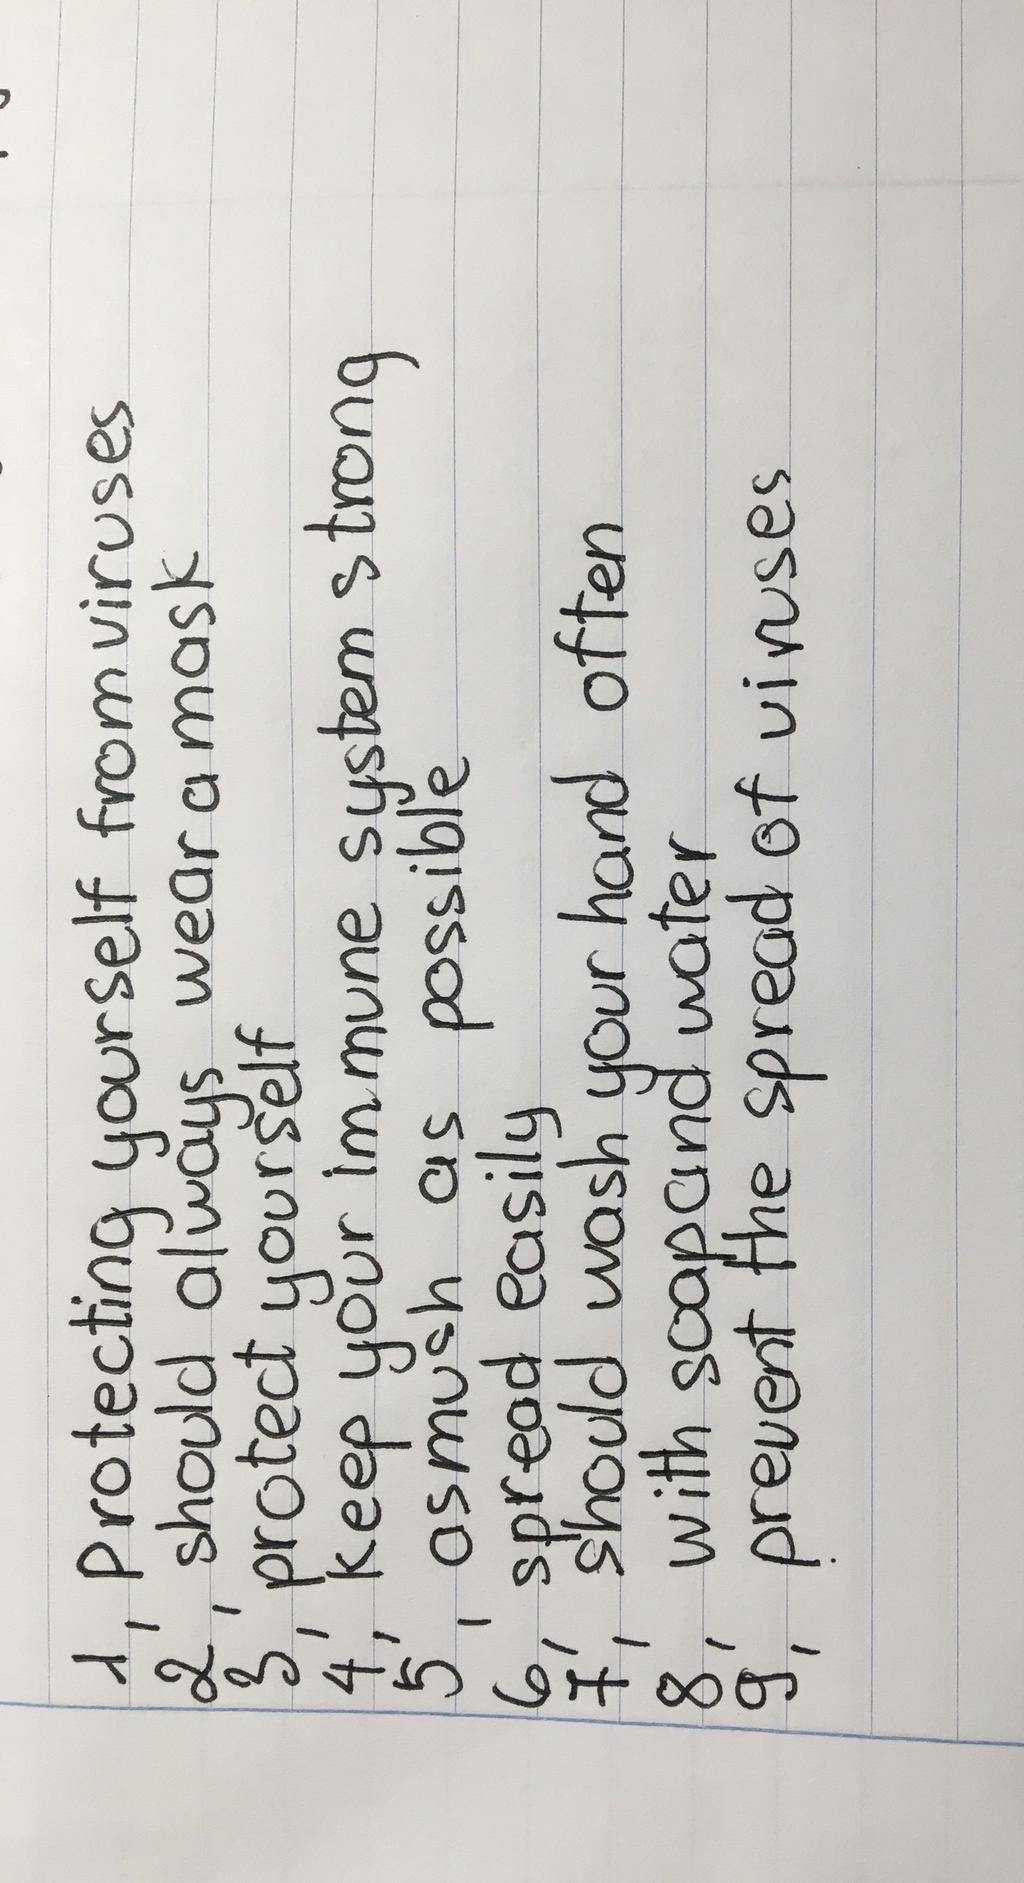 1, Protecting yourself from viruses
2, should always wear a mask
3, protect yourself
4, keep your immune system strong
5, as mush as possible
6, spread easily
7, should wash your hand often
8, with soap and water
9, prevent the spread of viruses